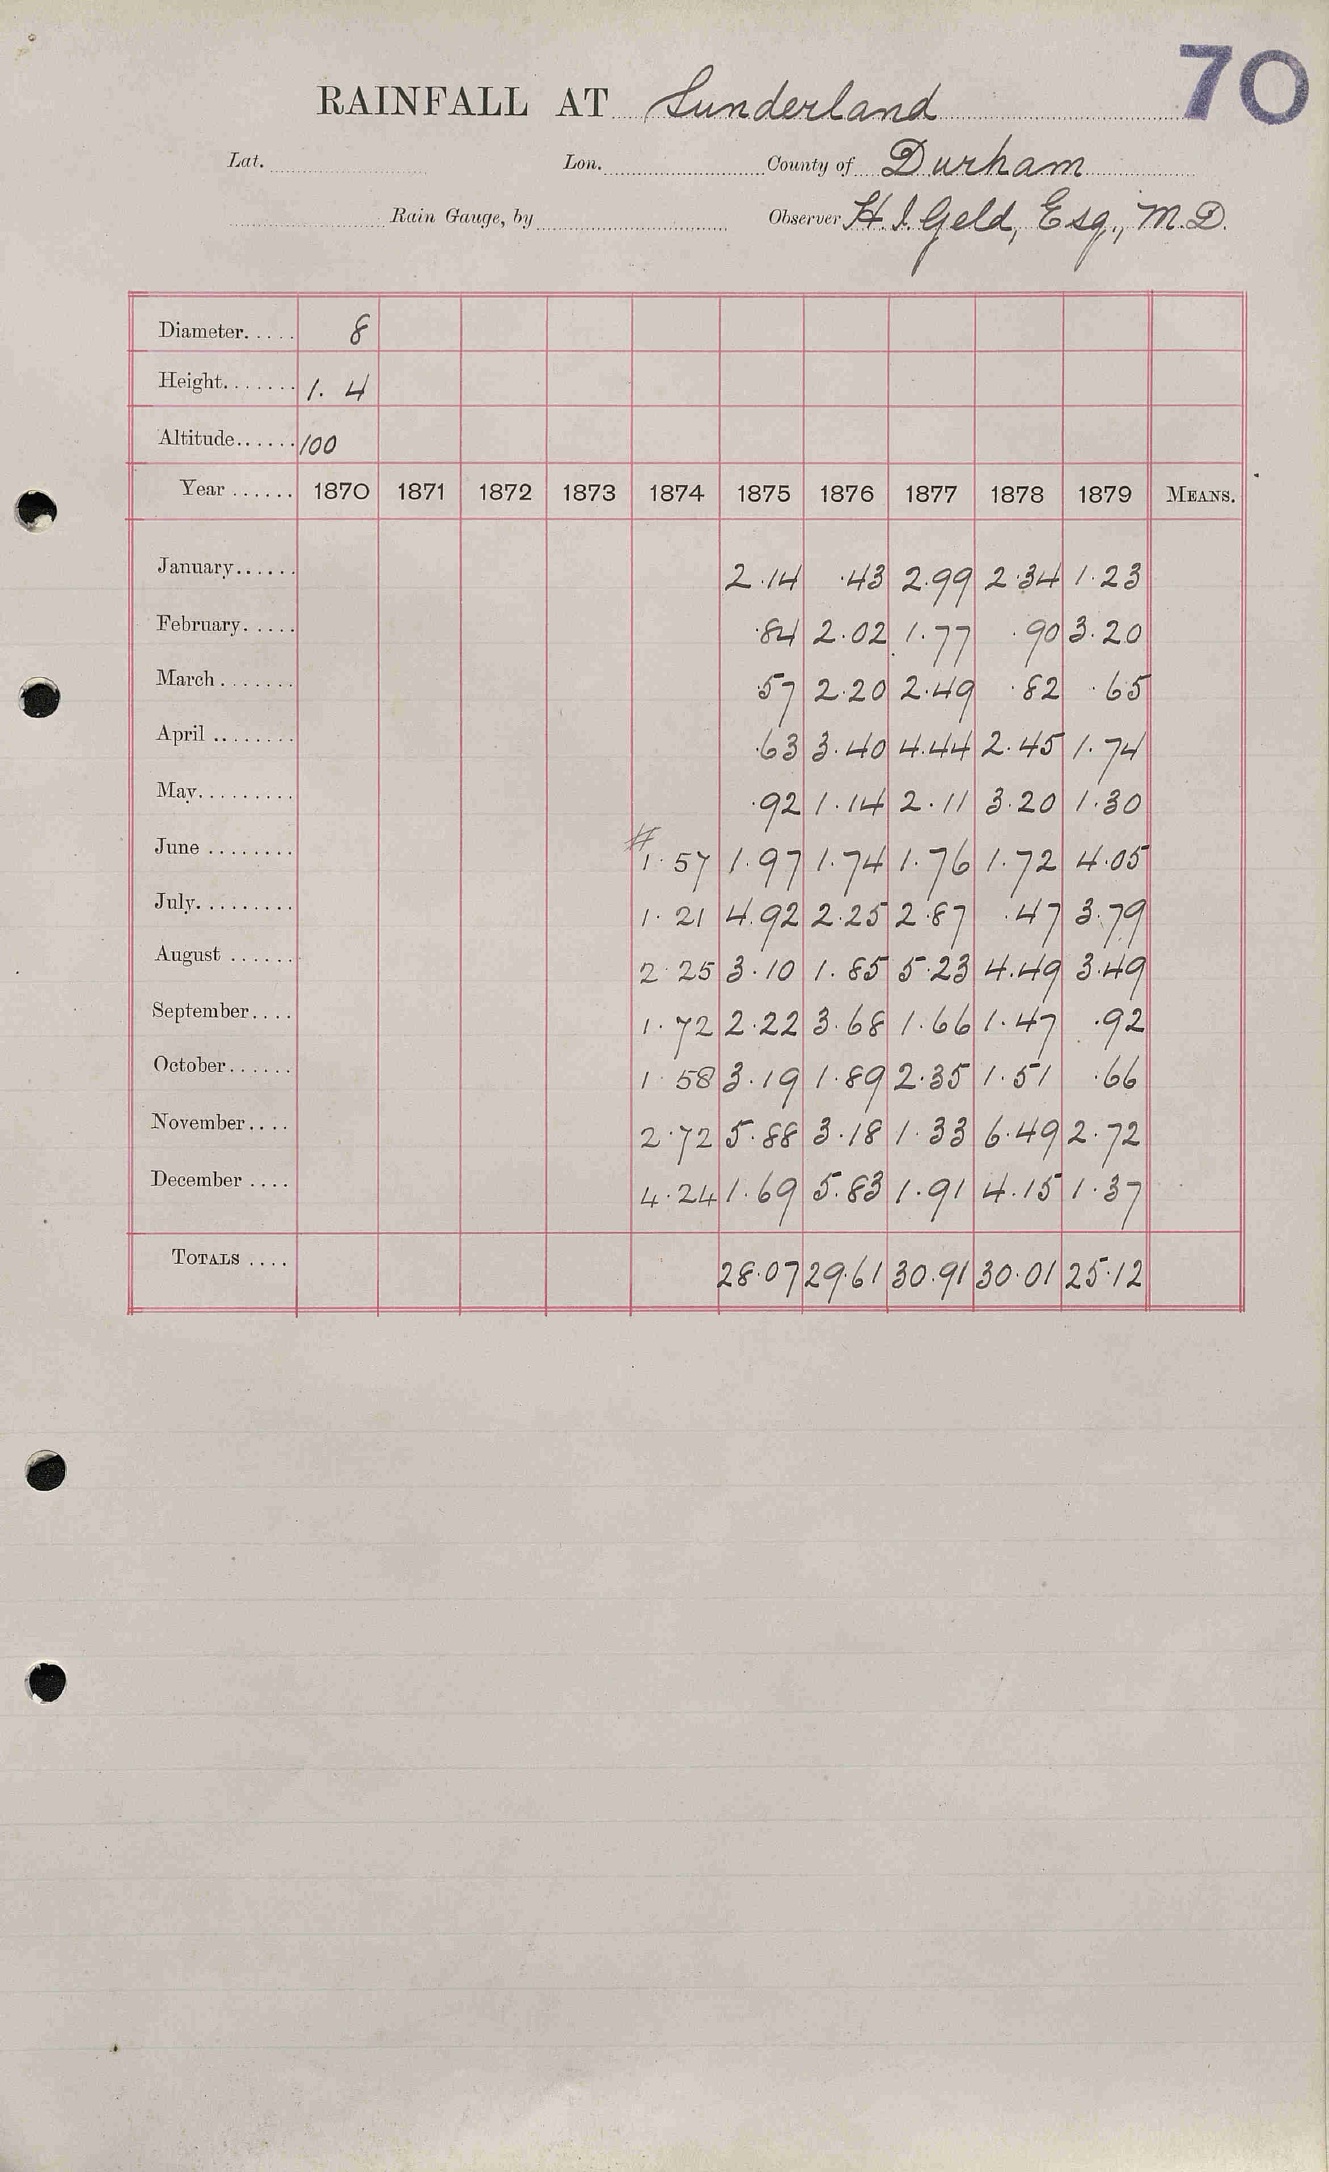 70
RAINFALL AT Sunderland
Lat. Lon. County of Durham
Rain Gauge, by Observer H. J. Geld, Esq., M.D.
Diameter..... 8
Height....... 1. 4
Altitude...... 100
Year ...... 1870 1871 1872 1873 1874 1875 1876 1877 1878 1879 MEANS.
January...... 2.14 .43 2.99 2.34 1.23
February..... .84 2.02 1.77 .90 3.20
March ....... .57 2.20 2.49 .82 .65
April ........ .63 3.40 4.44 2.45 1.74
May......... .92 1.14 2.11 3.20 1.30
#
June ........ 1.57 1.97 1.74 1.76 1.72 4.05
July......... 1.21 4.92 2.25 2.87 .47 3.79
August ...... 2.25 3.10 1.85 5.23 4.49 3.49
September.... 1.72 2.22 3.68 1.66 1.47 .92
October...... 1.58 3.19 1.89 2.35 1.51 .66
November.... 2.72 5.88 3.18 1.33 6.49 2.72
December .... 4.24 1.69 5.83 1.91 4.15 1.37
TOTALS .... 28.07 29.61 30.91 30.01 25.12